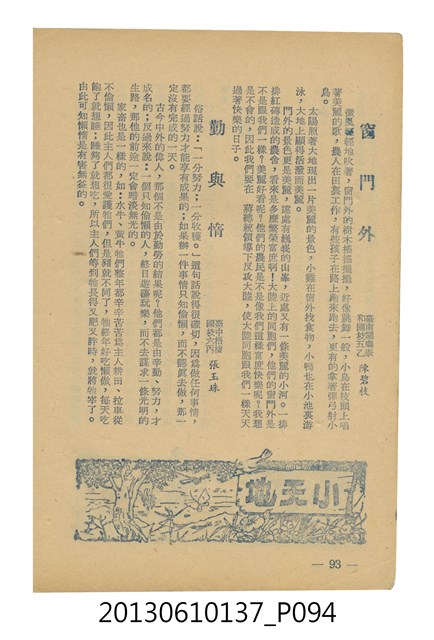 窗門外
臺南關廟崇和國校五乙 陳碧枝
微風輕輕地吹著，窗門外的樹木搖搖擺擺，好像跳舞一般，小鳥在枝頭上唱
著美麗的歌，農人在田裏工作，有些孩子在路上跑來跑去，更有的拿著彈弓射小
鳥。
太陽照著大地現出一片美麗的景色，小雞在窗外找食物，小鴨也在小池裏游
泳，大地上顯得活潑而美麗。
門外的景色更是美麗，遠處有巍峨的山峯，近處又有一條美麗的小河。一排
排紅磚造成的農舍，看來是多麼繁榮富庶啊！大陸上的同胞們，他們的窗門外是
不是跟我們一樣？美麗好看呢？他們的農民是不是像我們這種富庶快樂呢？我想
是不會的，因此我們要在 蔣總統領導下反攻大陸，使大陸同胞跟我們一樣天天
過著快樂的日子。
勤與惰
臺中梧棲國校六丙 張玉珠
俗話說：「一分努力，一分收穫。」這句話說得很確切，因為做任何事情，
都要經過努力才能享有成果的；如果夢一件事情只知偷懶，而不認眞去做，那一
定沒有完成的一天。
古今中外的偉人，那個不是由於勤勞的結果呢？他們都是由辛勤、努力，才
成名的；反過來說：一個只知偷懶的人，終日遊蕩玩樂，而不去謀求一條光明的
生路，那他的前途一定會暗淡無光的。
家畜也是一樣的，如：水牛、黃牛牠們整年都辛辛苦苦為主人耕田、拉車從
不偷懶，因此主人們都很愛護牠們，但是豬就不同了，牠終年好吃懶做，每天吃
飽了就想睡；睡夠了就想吃，所以主人們等到牠長得又肥又胖時，就將牠宰了。
由此可知懶惰是有害無益的。
小天地
— 93 —
20130610137_P094